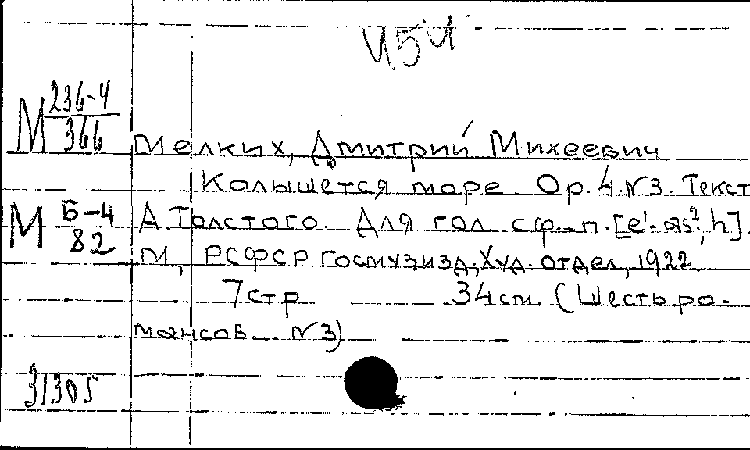 И5И
М 236-4/366
Мелких, Дмитрий Михеевич
Колышется море. Op. 4 №3. Текст
М Б-4/82
А. Толстого. Для гол. с ф.-п. [e¹-as², h].
М., РСФСР Госмузизд., Худ. отдел, 1922
7 стр 34 см. (Шесть ро-
мансов №3)
31305